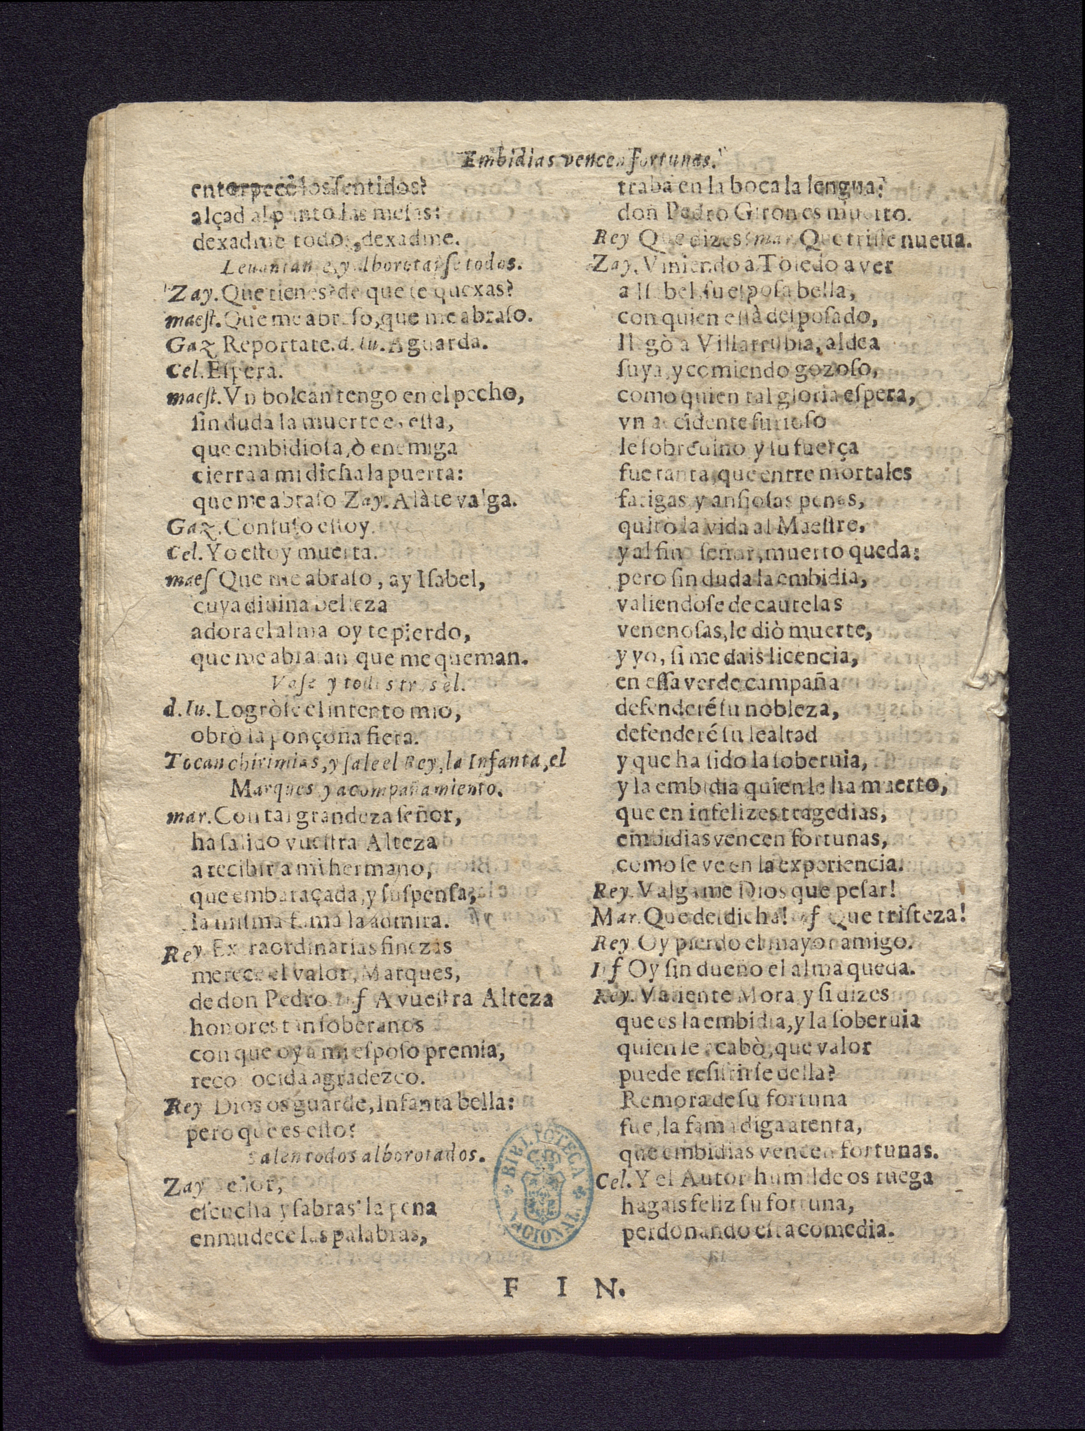 Embidias vencen fortunas.
entorpecẽ los sentidos?
alçad al punto las mesas:
dexadme todos, dexadme.
Leuantanse, y alborotanse todos.
Zay. Que tienes? de que te quexas?
maest. Que me abraso, que me abraso.
Gaz. Reportate. d. lu. Aguarda.
Cel. Espera.
maest. Vn bolcan tengo en el pecho,
sin duda la muerte es esta,
que embidiosa, ò enemiga
cierra a mi dicha la puerta:
que me abraso Zay. Alà te valga.
Gaz. Confuso estoy.
Cel. Yo estoy muerta.
maes Que me abraso, ay Isabel,
cuya diuina belleza
adora el alma oy te pierdo,
que me abrasan que me queman.
Vase y todos tras el.
d. lu. Logròse el intento mio,
obrò la ponçoña fiera.
Tocan chirimias, y sale el Rey, la Infanta, el
Marques y acompañamiento.
mar. Con tal grandeza señor,
ha salido vuestra Alteza
a recibir a mi hermano,
que embaraçada, y suspensa,
la misma fama la admira.
Rey Extraordinarias finezas
merece el valor, Marques,
de don Pedro. Inf A vuestra Alteza
honores tan soberanos
con que oy a mi esposo premia,
reconocida agradezco.
Rey Dios os guarde, Infanta bella:
pero que es esto?
Salen todos alborotados.
Zay señor,
escucha y sabras la pena
enmudece las palabras,
traba en la boca la lengua:
don Pedro Giron es muerto.
Rey Que dizes? mar. Que triste nueua.
Zay. Viniendo a Toledo a ver
a Isabel su esposa bella,
con quien està desposado,
llegò a Villarrubia, aldea
suya, y comiendo gozoso,
como quien tal gloria espera,
vn accidente furioso
le sobreuino y su fuerça
fue tanta, que entre mortales
fatigas y ansiosas penas,
quitò la vida al Maestre,
y al fin señor, muerto queda:
pero sin duda la embidia,
valiendose de cautelas
venenosas, le diò muerte,
y yo, si me dais licencia,
en essa verde campaña
defenderé su nobleza,
defenderé su lealtad
y que ha sido la soberuia,
y la embidia quien le ha muerto,
que en infelizes tragedias,
embidias vencen fortunas,
como se ve en la experiencia.
Rey. Valgame Dios que pesar!
Mar. Que desdicha! Inf Que tristeza!
Rey. Oy pierdo el mayor amigo.
Inf Oy sin dueño el alma queda.
Rey. Valiente Mora, y si dizes
que es la embidia, y la soberuia
quien le acabò, que valor
puede resistirse della?
Remora de su fortuna
fue, la fama diga atenta,
que embidias vencen fortunas.
Cel. Y el Autor humilde os ruega
hagais feliz su fortuna,
perdonando esta comedia.
BIBLIOTECA NACIONAL
F I N.